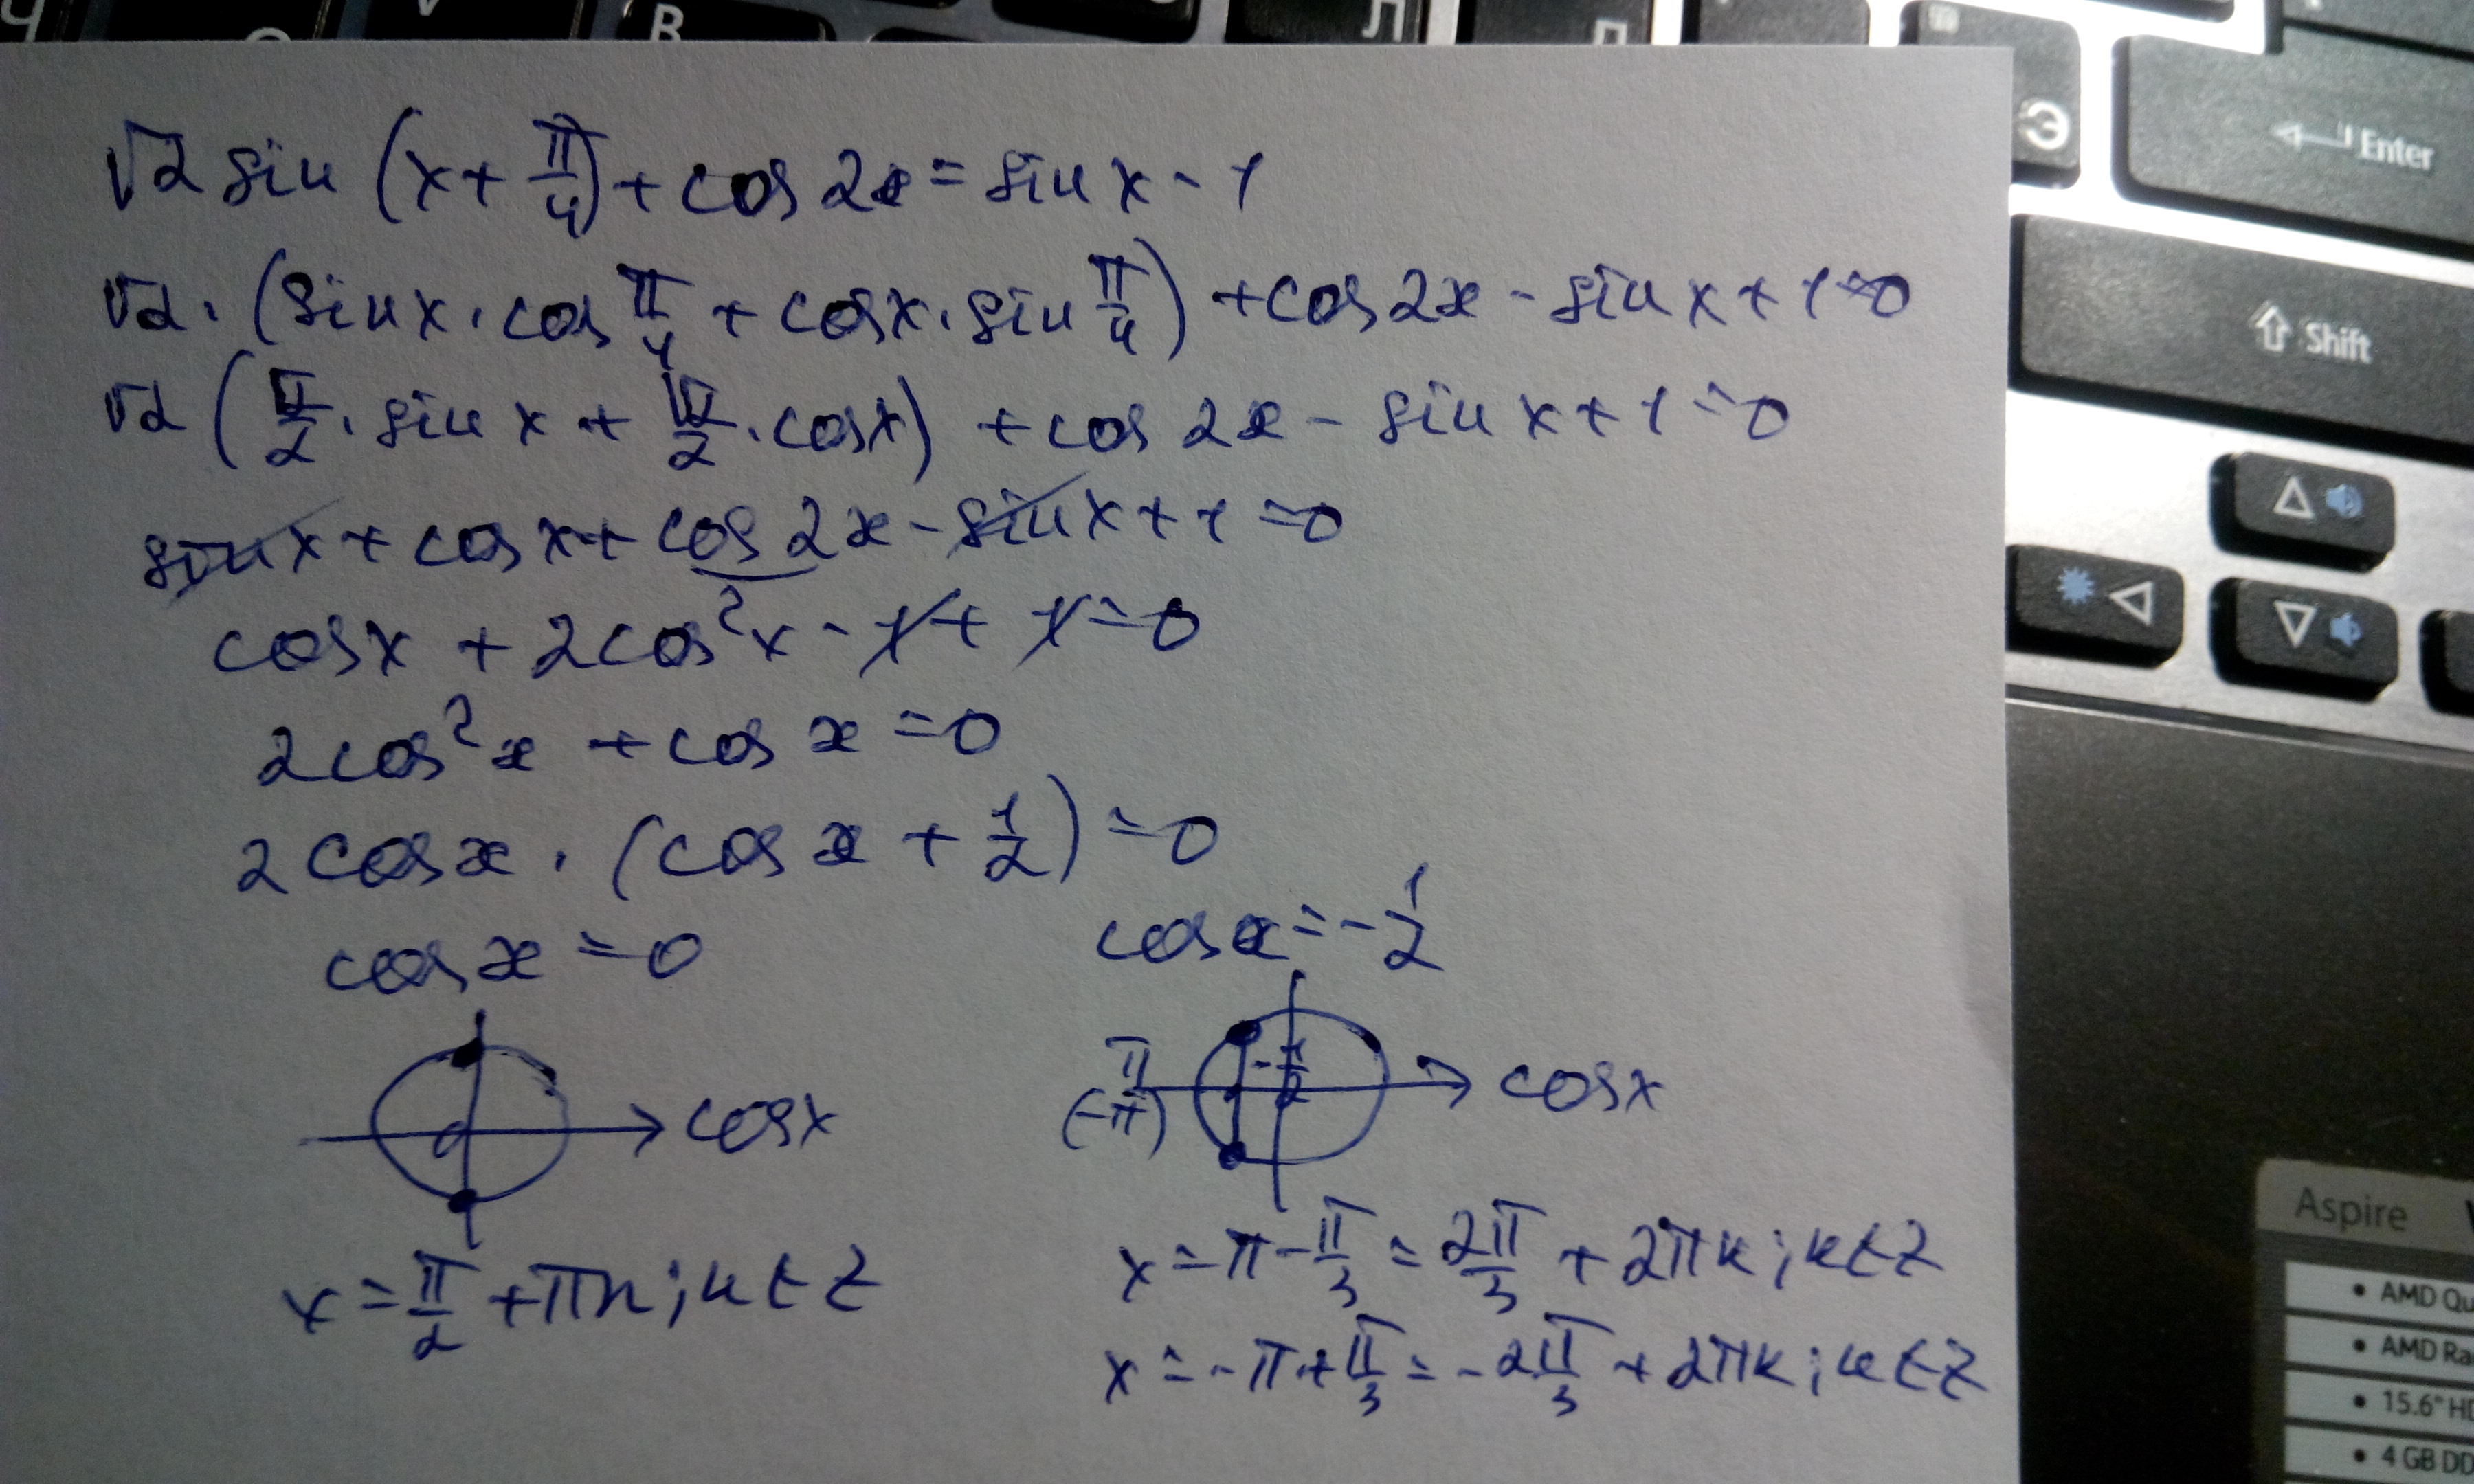 Ч
V
B
Л
Э
Enter
Shift
√2 sin (x + π/4) + cos 2x = sin x - 1
√2 · (sin x · cos π/4 + cos x · sin π/4) + cos 2x - sin x + 1 = 0
√2 (√2/2 · sin x + √2/2 · cos x) + cos 2x - sin x + 1 = 0
sin x + cos x + cos 2x - sin x + 1 = 0
cos x + 2cos²x - 1 + 1 = 0
2cos²x + cos x = 0
2cos x · (cos x + 1/2) = 0
cos x = 0
cos x = -1/2
0
cos x
π
(-π)
-1/2
cos x
x = π/2 + πn; n ∈ Z
x = π - π/3 = 2π/3 + 2πk; k ∈ Z
x = -π + π/3 = -2π/3 + 2πk; k ∈ Z
Aspire
• AMD Qu
• AMD Ra
• 15.6" HD
• 4 GB DD